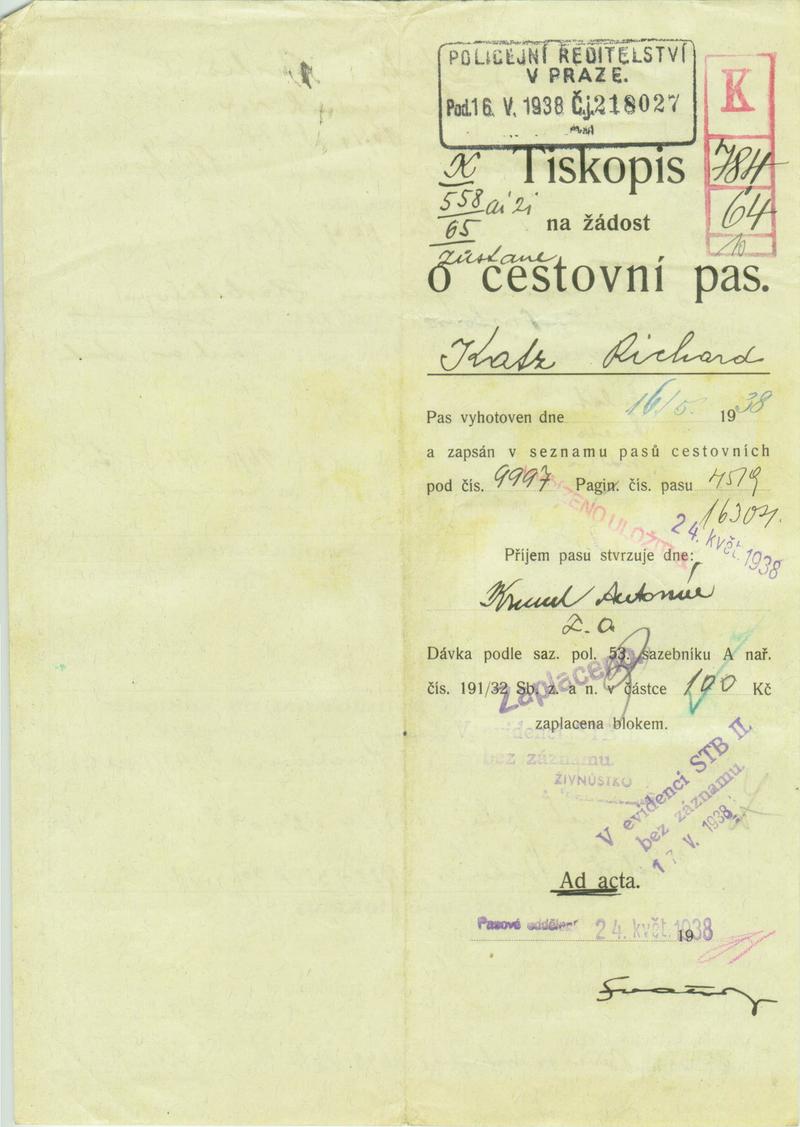 POLICEJNÍ ŘEDITELSTVÍ
V PRAZE.
Pod. 16. V. 1938 Č.j. 218027
K
784
64
10
X
558
65
zůstane
Tiskopis
na žádost
o cestovní pas.
Katz Richard
Pas vyhotoven dne 16/5. 1938
a zapsán v seznamu pasů cestovních
pod čís. 9997 Pagin. čís. pasu 4519
16304.
24. kvě. 1938
Příjem pasu stvrzuje dne:
Z. a
Dávka podle saz. pol. 53. sazebníku A nař.
čís. 191/32 Sb. z. a n. v částce 100 Kč
Zaplaceno
zaplacena blokem.
V evidenci
bez záznamu.
ŽIVNOSTKO
V evidenci STB II.
bez záznamu.
17. V. 1938
Ad acta.
Pasové oddělení 24. kvě. 1938
19